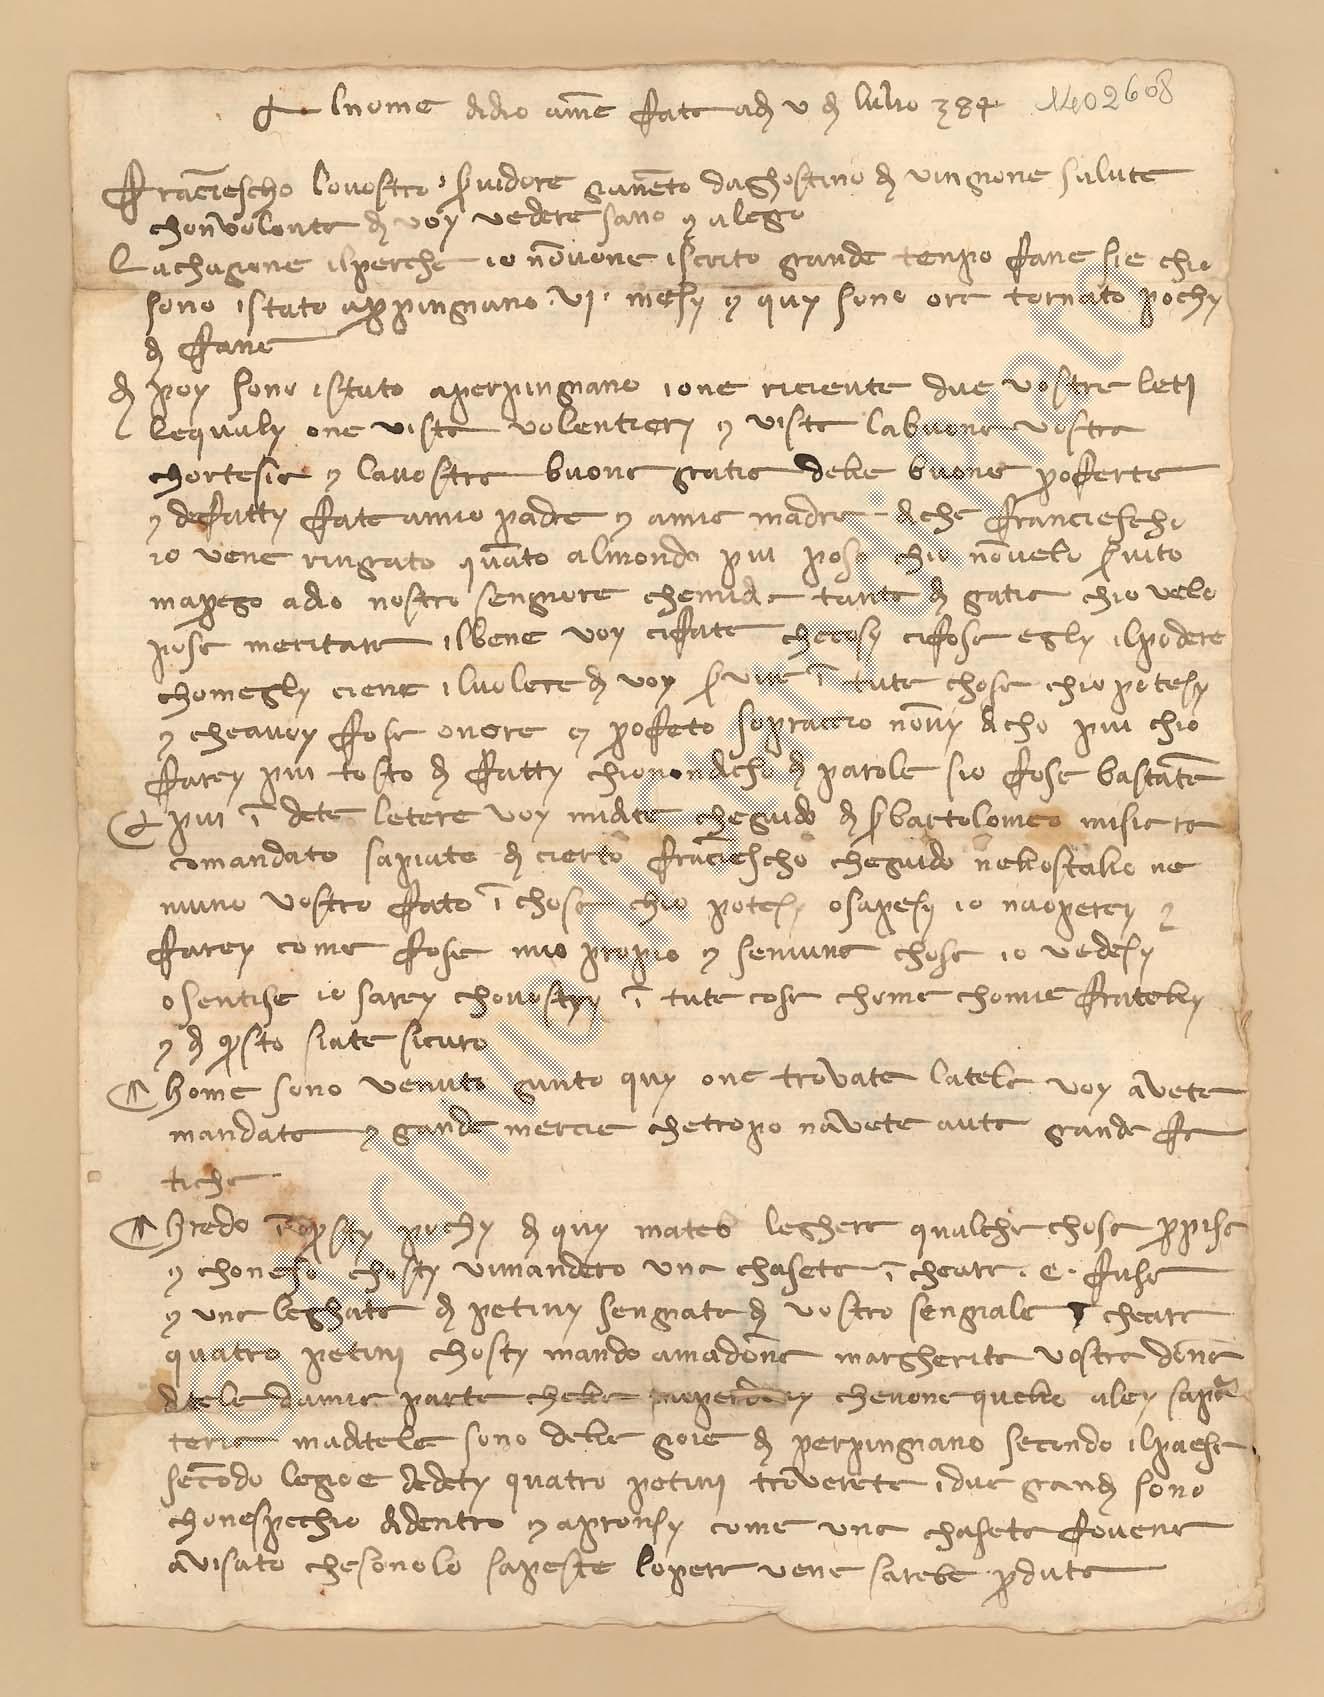 Al nome di dio ame fata adi v di lulio 384 1402608
Franciescho lo vostro servidore gianeto daghostino di vingnone salute
chon volonta di voy vedere sano y alegro
La chagione il perche io no v one iscrito grande tenpo fane sie chio
sono istato a perpingnano .vj. mesy y quy sono ora tornato pochy
di fane
di poy sono istato a perpingnano ione riciente due vostre let
lequaly one viste volentiery y viste la buona vostra
chortesia y la vostra buona gratia dele buone proferte
y defatty fate a mio padre y a mia madre di che franciescho
io vene ringrato quanto al mondo piu poso chio no velo servito
ma prego a dio nostro sengnore che mi dia tanta di gratia chio velo
posa meritare il bene voy ci fate che cosy ci fose egly il podere
chomegly ciene il volere di voy servire i tute chose chio potesy
y che a voy fose onore y profeto sopra cio no vy dicho piu chio
farey piu tosto di fatty chio non dicho di parole sio fose bastate
E piu i dete letere voy mi dite che guido di ser bartolomeo mi sie ra
comandato sapiate di cierto franciescho che guido nelo stallo ne
niuno vostro fato i chosa chio potesy o sapesy io naoperey y
farey come fose mio propio y se niuna chosa io vedesy
o sentise io sarey cho vostry i tute cose chome cho mie fratelly
y di questo siate sicuro
Chome sono venuto gunto quy one trovate la tele voy avete
mandate y grande mercie che tropo navete auta grande fa
ticha
Chredo i questy pochy di quy matero leghare qualche chosa per pisa
y chon eso chosty vi mandero una chaseta i che are .c. fuse
y una leghata di petiny sengnata di vostro sengnale i che are
quatro petini chosty mando a madona margherita vostra dona
ditele da mia parte chela mi perdony che none quello a ley sapar
teria ma ditele sono dele goie di perpingnano secondo il paese
secondo legoe dedety quatro petini troverete i due grandi sono
chon espechio didentro y apronsy come una chaseta fovene
avisato che sono lo sapeste lopera vene sarebe perduta